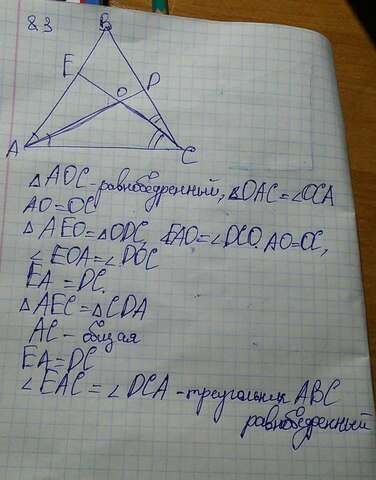 83
B
E
D
O
A
C
△AOC-равнобедренный, ∠OAC=∠OCA
AO=OC
△AEO=△ODC, ∠EAO=∠DCO. AO=OC,
∠EOA=∠DOC
EA=DC.
△AEC=△CDA
AC-общая
EA=DC
∠EAC=∠DCA-треугольник ABC
равнобедренный